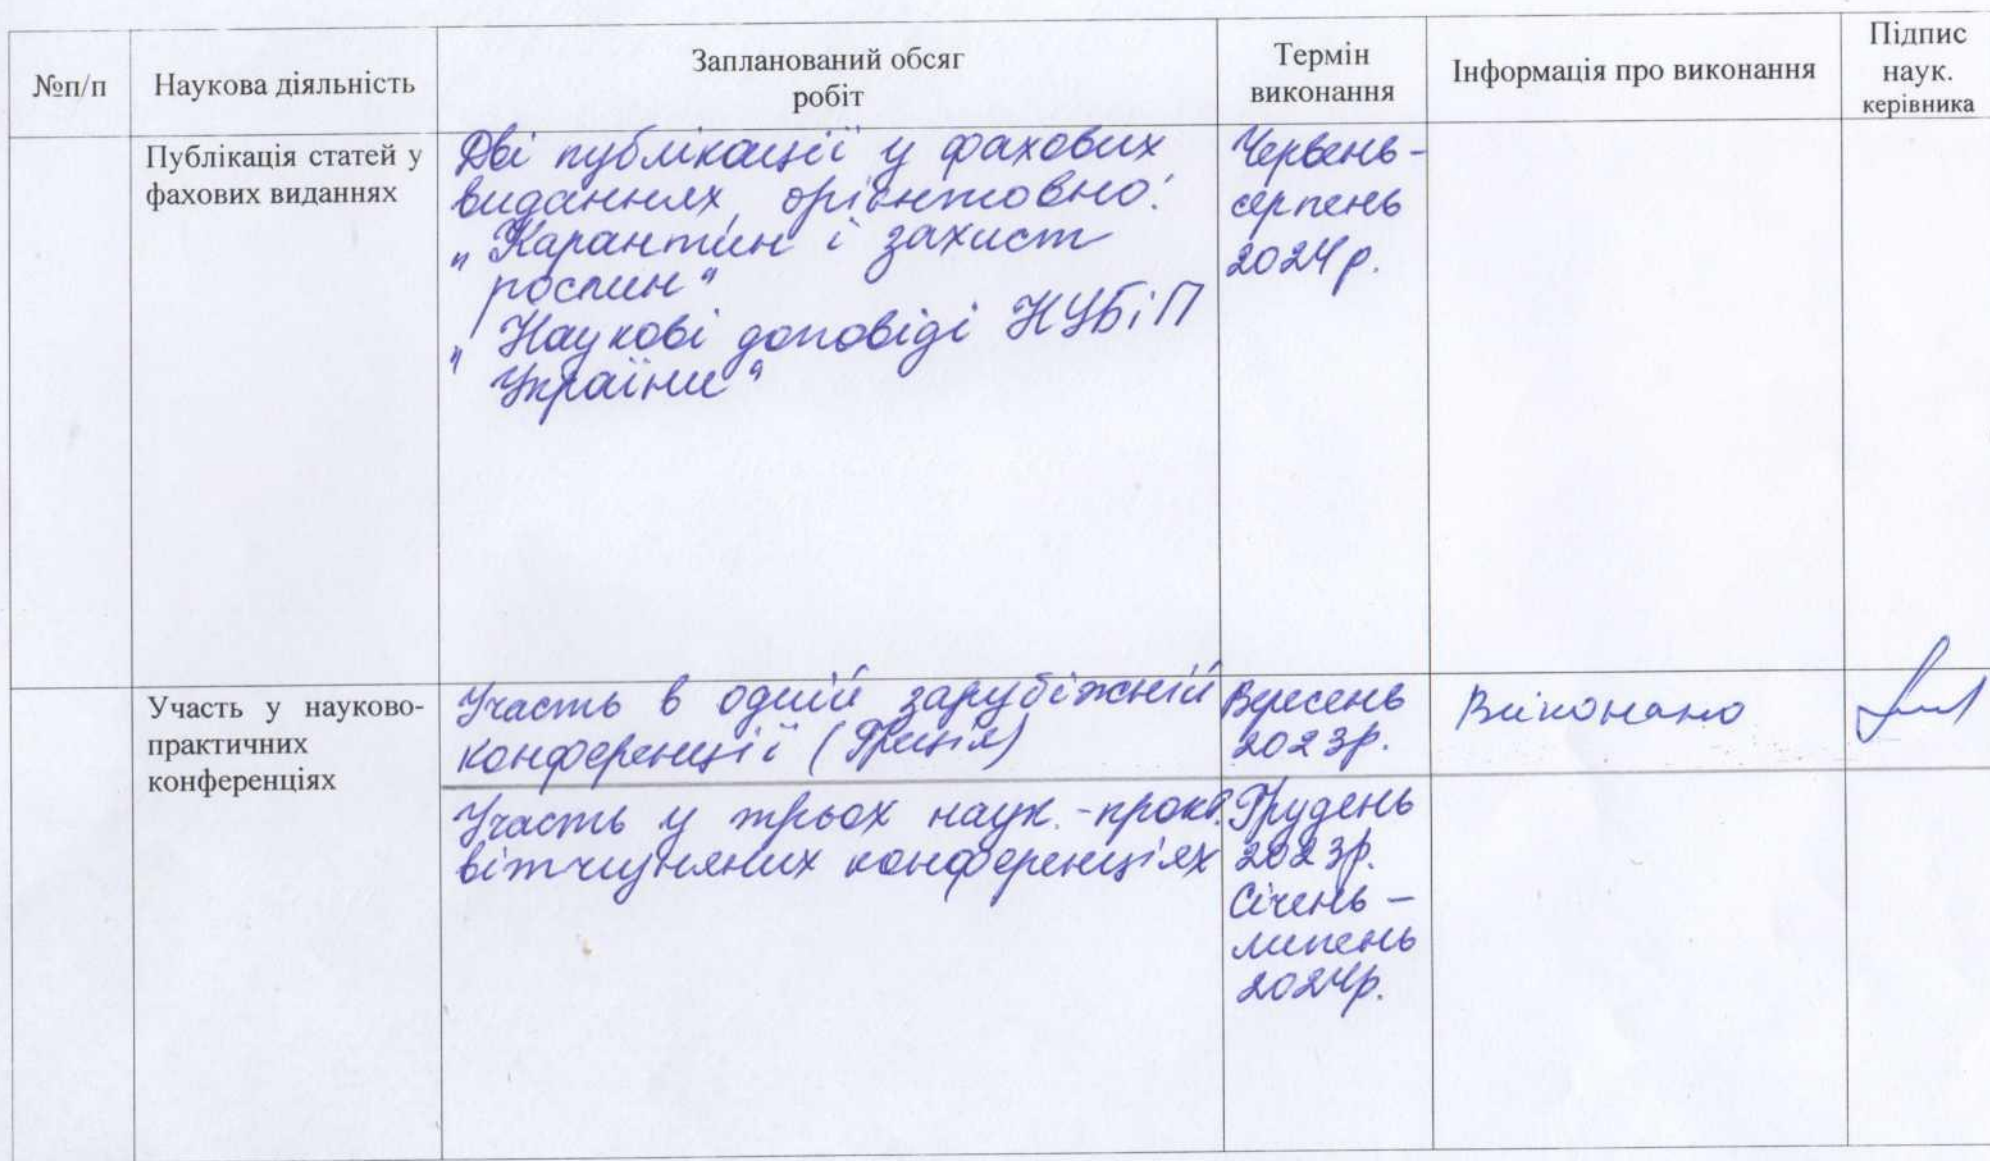 №п/п
Наукова діяльність
Запланований обсяг
робіт
Термін
виконання
Інформація про виконання
Підпис
наук.
керівника
Публікація статей у
фахових виданнях
Дві публікації у фахових
виданнях, орієнтовно:
"Карантин і захист
рослин"
"Наукові доповіді НУБіП
України"
Червень-
серпень
2024р.
Участь у науково-
практичних
конференціях
Участь в одній зарубіжній
конференції (Греція)
Вересень
2023р.
Виконано
Участь у трьох наук.-практ.
вітчизняних конференціях
Грудень
2023р.
Січень -
липень
2024р.